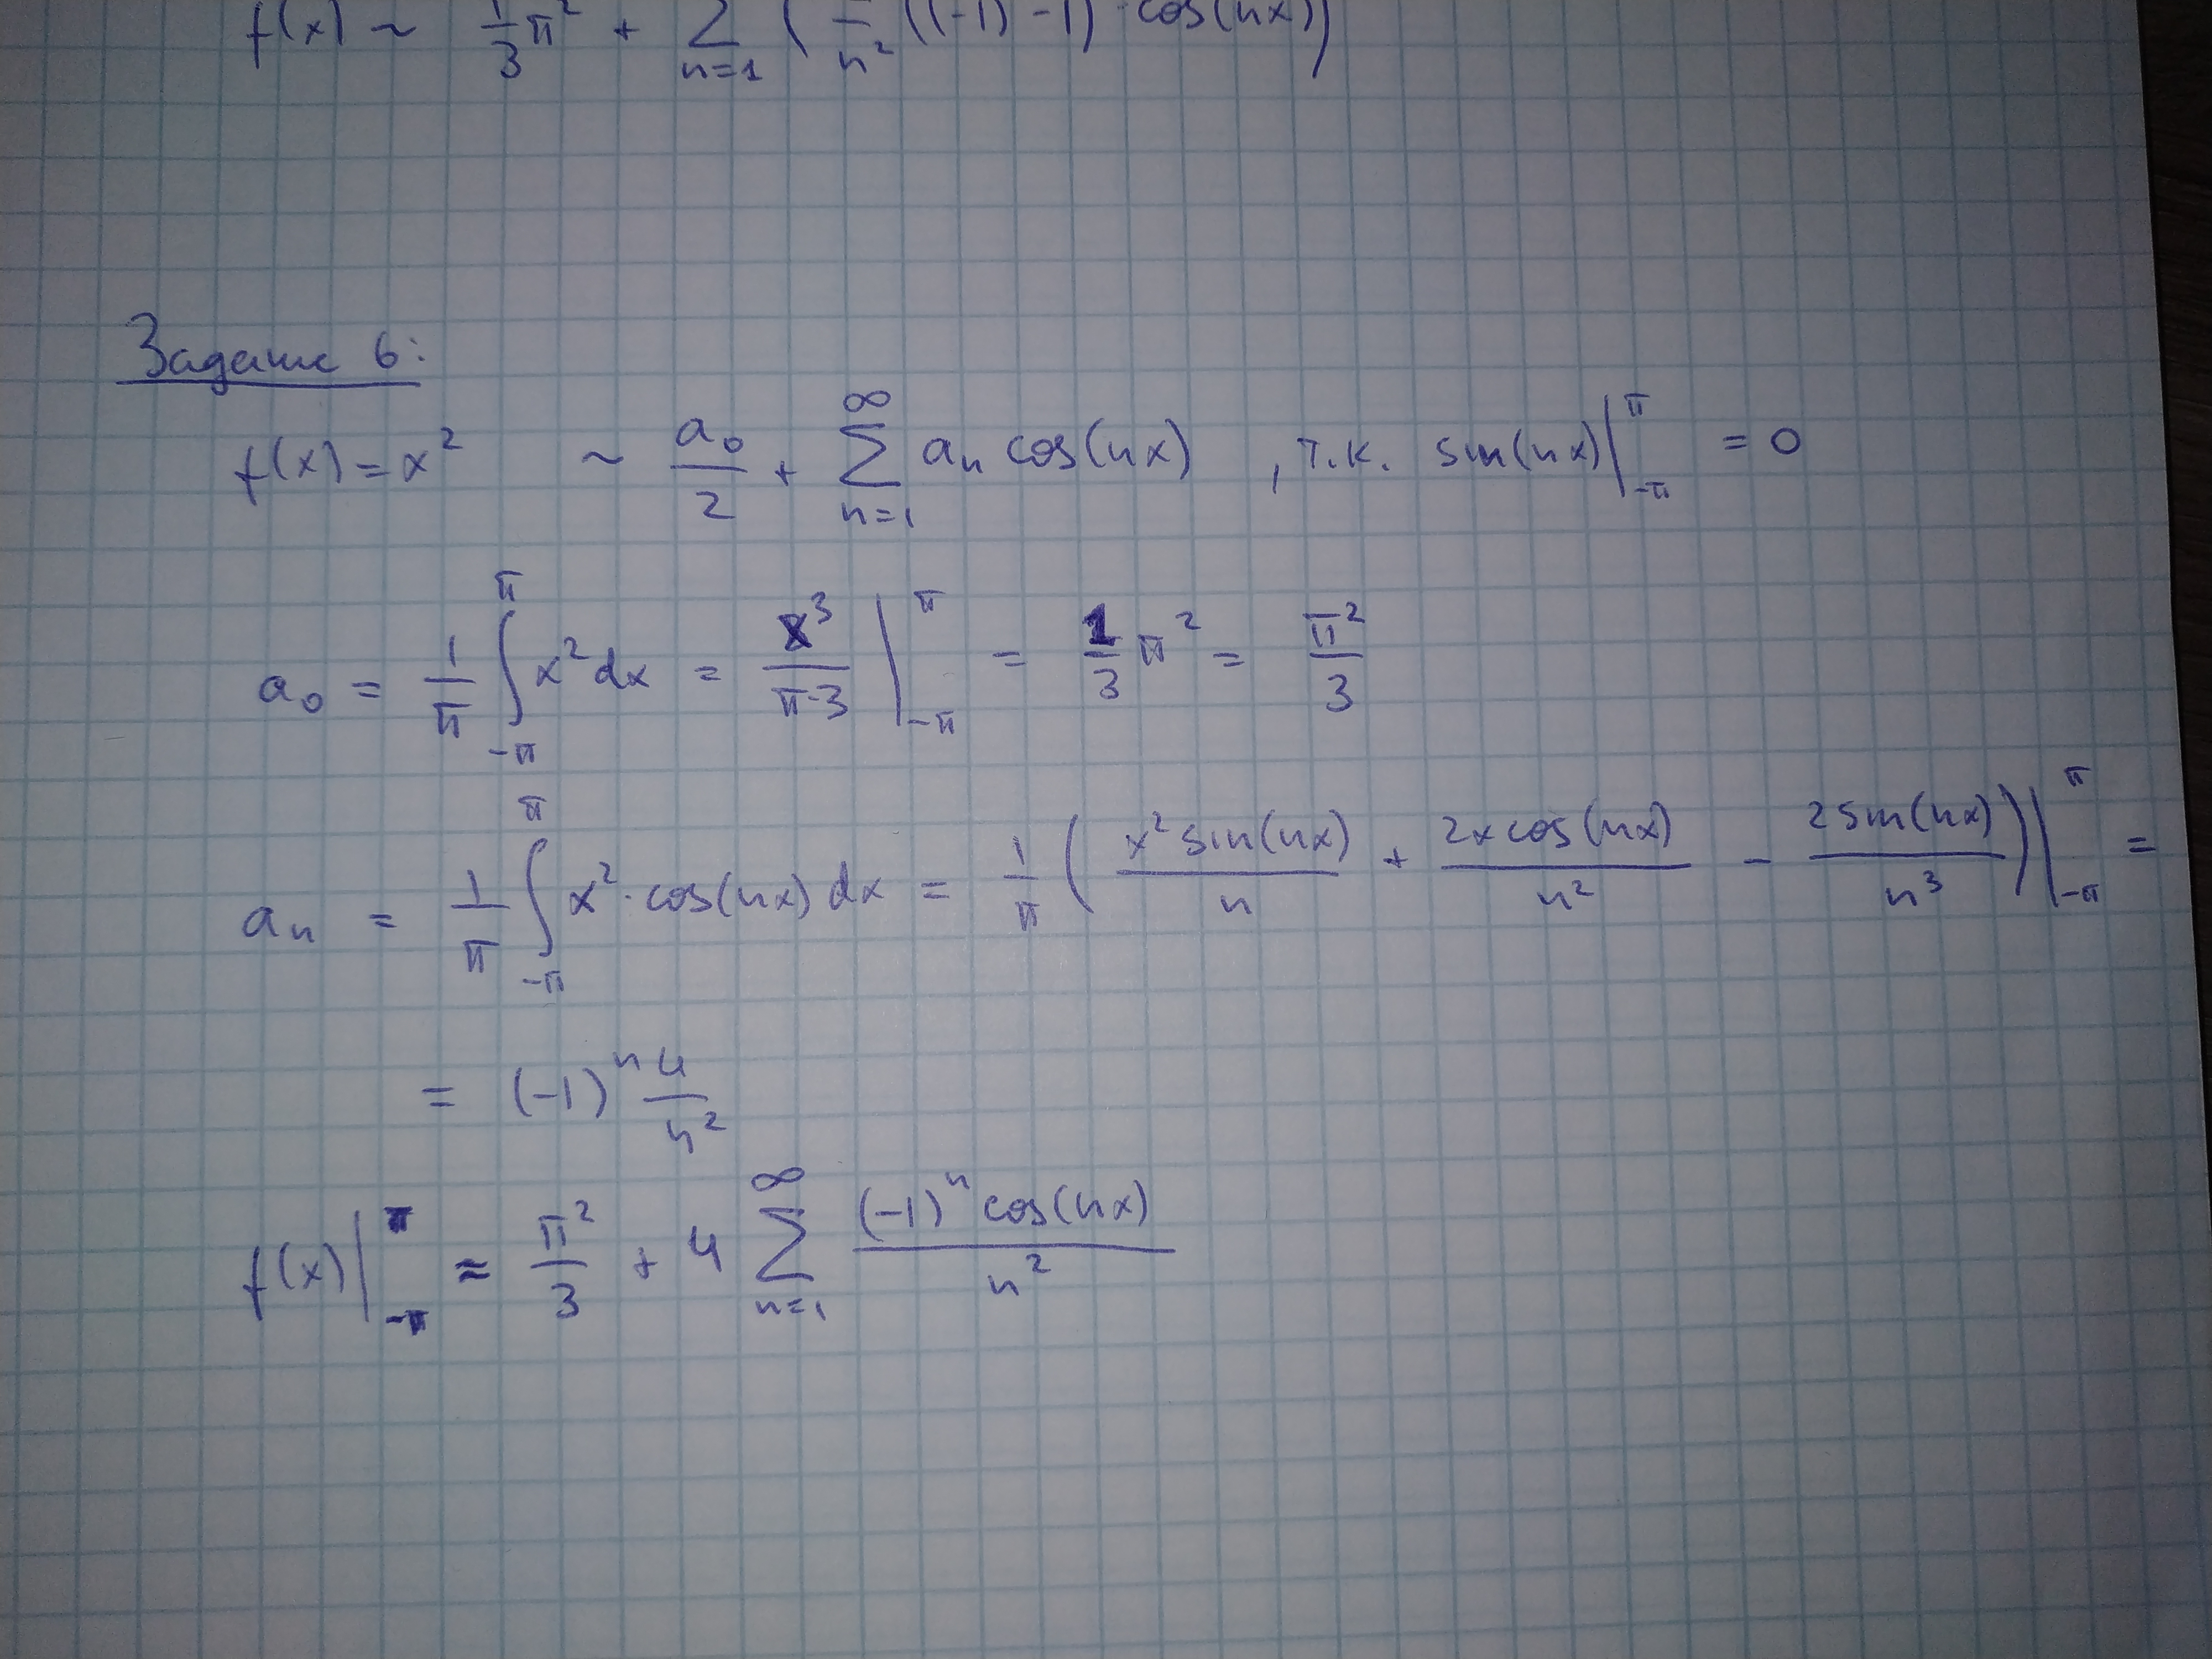 f(x) ~ 1/3 π² + ∑_{n=1} ( /n² ((-1) -1) · cos(nx))
Задание 6:
f(x) = x² ~ a₀/2 + ∑_{n=1}^{∞} aₙ cos(nx) , т.к. sin(nx)|_{-π}^{π} = 0
a₀ = 1/π ∫_{-π}^{π} x² dx = x³/(π·3) |_{-π}^{π} = 1/3 π² = π²/3
aₙ = 1/π ∫_{-π}^{π} x² · cos(nx) dx = 1/π ( x² sin(nx)/n + 2x cos(nx)/n² - 2 sin(nx)/n³ )|_{-π}^{π} =
= (-1)ⁿ 4/n²
f(x)|_{-π}^{π} ≈ π²/3 + 4 ∑_{n=1}^{∞} (-1)ⁿ cos(nx)/n²